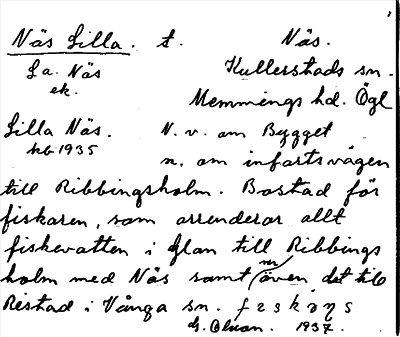 Näs Lilla. t. Näs.
La. Näs Kullerstads sn.
ek. Memmings hd. Ögl
Lilla Näs. N. v. om Bygget
kb 1935 n. om infartsvägen
till Ribbingsholm. Bostad för
fiskaren, som arrenderar allt
fiskevatten i Glan till Ribbings
holm med Näs samt nu även det till
Ristad i Vånga sn.
1937.